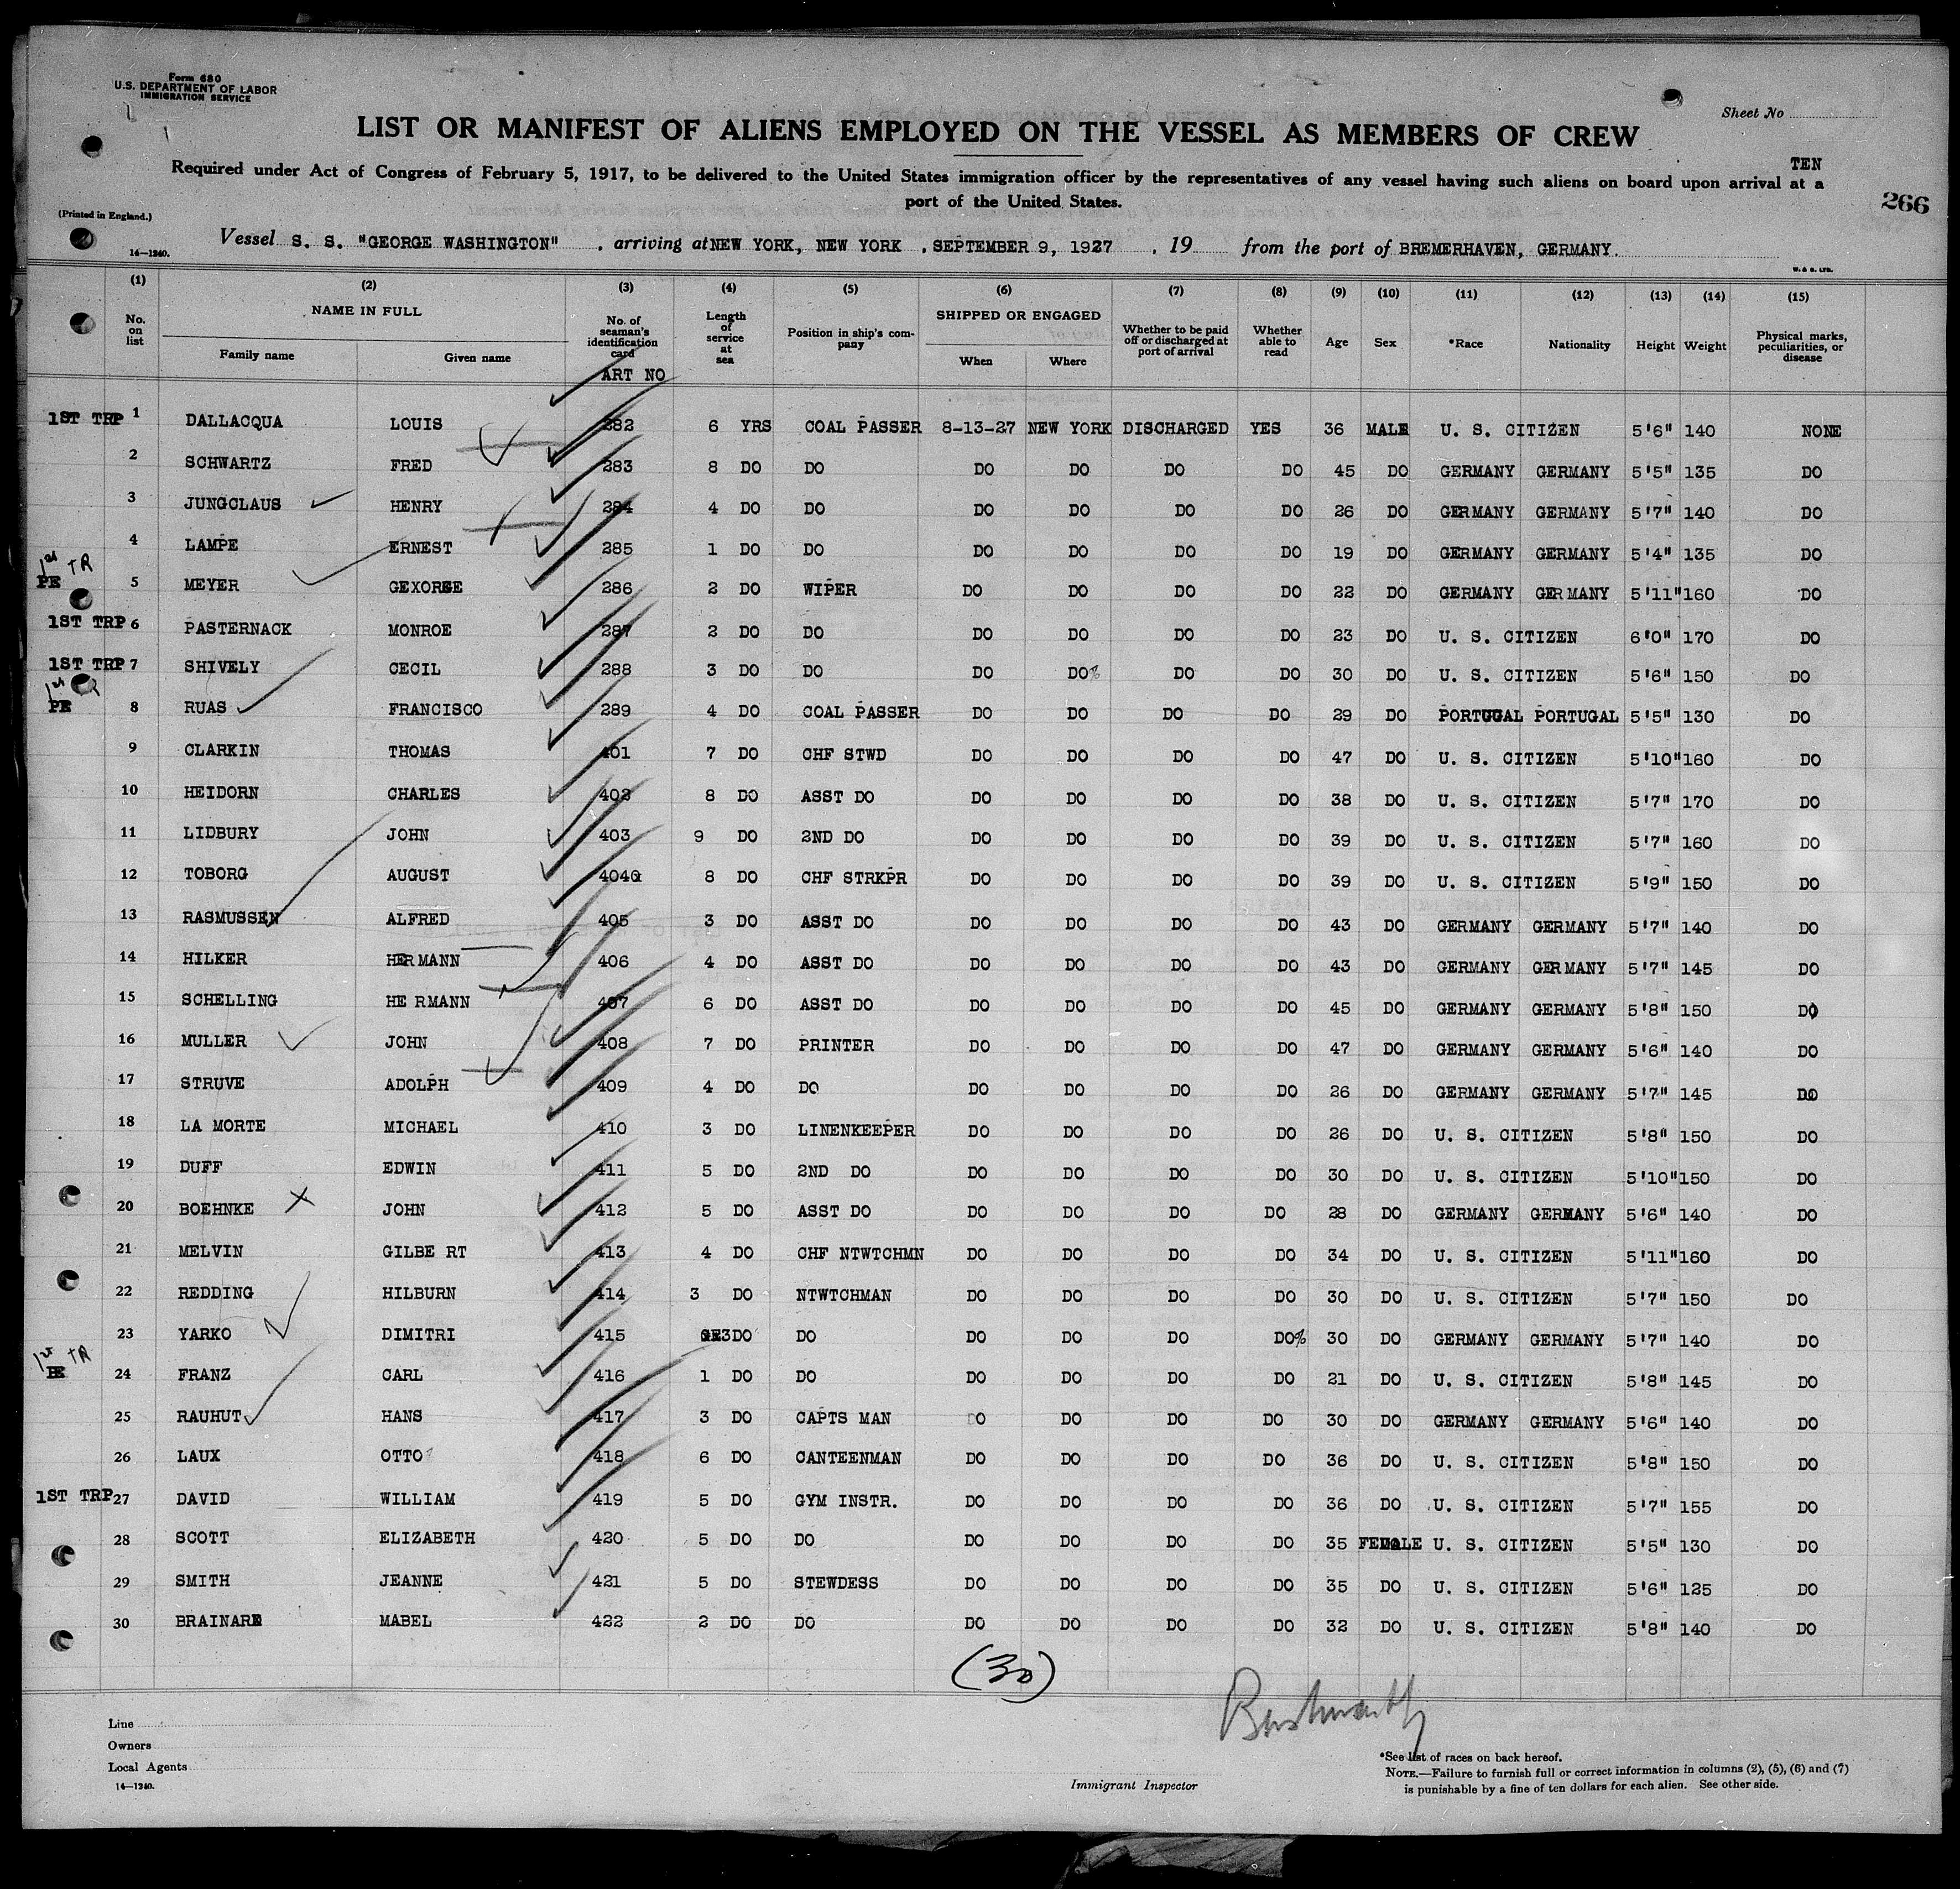 Form 680
U.S. DEPARTMENT OF LABOR
IMMIGRATION SERVICE
Sheet No
LIST OR MANIFEST OF ALIENS EMPLOYED ON THE VESSEL AS MEMBERS OF CREW
TEN
Required under Act of Congress of February 5, 1917, to be delivered to the United States immigration officer by the representatives of any vessel having such aliens on board upon arrival at a
port of the United States.
266
(Printed in England.)
Vessel S. S. "GEORGE WASHINGTON" , arriving at NEW YORK, NEW YORK , SEPTEMBER 9, 1927 , 19 from the port of BREMERHAVEN, GERMANY.
14—1240.
W. & S. LTD.
(1) (2) (3) (4) (5) (6) (7) (8) (9) (10) (11) (12) (13) (14) (15)
No. on list NAME IN FULL Family name Given name No. of seaman's identification card Length of service at sea Position in ship's company SHIPPED OR ENGAGED When Where Whether to be paid off or discharged at port of arrival Whether able to read Age Sex *Race Nationality Height Weight Physical marks, peculiarities, or disease
ART NO
1ST TRP 1 DALLACQUA LOUIS 282 6 YRS COAL PASSER 8-13-27 NEW YORK DISCHARGED YES 36 MALE U. S. CITIZEN 5'6" 140 NONE
2 SCHWARTZ FRED 283 8 DO DO DO DO DO DO 45 DO GERMANY GERMANY 5'5" 135 DO
3 JUNGCLAUS HENRY 284 4 DO DO DO DO DO DO 26 DO GERMANY GERMANY 5'7" 140 DO
4 LAMPE ERNEST 285 1 DO DO DO DO DO DO 19 DO GERMANY GERMANY 5'4" 135 DO
1st TR
5 MEYER GEXORGE 286 2 DO WIPER DO DO DO DO 22 DO GERMANY GERMANY 5'11" 160 DO
1ST TRP 6 PASTERNACK MONROE 287 2 DO DO DO DO DO DO 23 DO U. S. CITIZEN 6'0" 170 DO
1ST TRP 7 SHIVELY CECIL 288 3 DO DO DO DO DO DO 30 DO U. S. CITIZEN 5'6" 150 DO
8 RUAS FRANCISCO 289 4 DO COAL PASSER DO DO DO DO 29 DO PORTUGAL PORTUGAL 5'5" 130 DO
9 CLARKIN THOMAS 401 7 DO CHF STWD DO DO DO DO 47 DO U. S. CITIZEN 5'10" 160 DO
10 HEIDORN CHARLES 402 8 DO ASST DO DO DO DO DO 38 DO U. S. CITIZEN 5'7" 170 DO
11 LIDBURY JOHN 403 9 DO 2ND DO DO DO DO DO 39 DO U. S. CITIZEN 5'7" 160 DO
12 TOBORG AUGUST 404 8 DO CHF STRKPR DO DO DO DO 39 DO U. S. CITIZEN 5'9" 150 DO
13 RASMUSSEN ALFRED 405 3 DO ASST DO DO DO DO DO 43 DO GERMANY GERMANY 5'7" 140 DO
14 HILKER HERMANN 406 4 DO ASST DO DO DO DO DO 43 DO GERMANY GERMANY 5'7" 145 DO
15 SCHELLING HE RMANN 407 6 DO ASST DO DO DO DO DO 45 DO GERMANY GERMANY 5'8" 150 DO
16 MULLER JOHN 408 7 DO PRINTER DO DO DO DO 47 DO GERMANY GERMANY 5'6" 140 DO
17 STRUVE ADOLPH 409 4 DO DO DO DO DO DO 26 DO GERMANY GERMANY 5'7" 145 DO
18 LA MORTE MICHAEL 410 3 DO LINENKEEPER DO DO DO DO 26 DO U. S. CITIZEN 5'8" 150 DO
19 DUFF EDWIN 411 5 DO 2ND DO DO DO DO DO 30 DO U. S. CITIZEN 5'10" 150 DO
20 BOEHNKE JOHN 412 5 DO ASST DO DO DO DO DO 28 DO GERMANY GERMANY 5'6" 140 DO
21 MELVIN GILBE RT 413 4 DO CHF NTWTCHMN DO DO DO DO 34 DO U. S. CITIZEN 5'11" 160 DO
22 REDDING HILBURN 414 3 DO NTWTCHMAN DO DO DO DO 30 DO U. S. CITIZEN 5'7" 150 DO
23 YARKO DIMITRI 415 3 DO DO DO DO DO DO% 30 DO GERMANY GERMANY 5'7" 140 DO
1st TR
24 FRANZ CARL 416 1 DO DO DO DO DO DO 21 DO U. S. CITIZEN 5'8" 145 DO
25 RAUHUT HANS 417 3 DO CAPTS MAN DO DO DO DO 30 DO GERMANY GERMANY 5'6" 140 DO
26 LAUX OTTO 418 6 DO CANTEENMAN DO DO DO DO 36 DO U. S. CITIZEN 5'8" 150 DO
1ST TRP 27 DAVID WILLIAM 419 5 DO GYM INSTR. DO DO DO DO 36 DO U. S. CITIZEN 5'7" 155 DO
28 SCOTT ELIZABETH 420 5 DO DO DO DO DO DO 35 FEMALE U. S. CITIZEN 5'5" 130 DO
29 SMITH JEANNE 421 5 DO STEWDESS DO DO DO DO 35 DO U. S. CITIZEN 5'6" 125 DO
30 BRAINARE MABEL 422 2 DO DO DO DO DO DO 32 DO U. S. CITIZEN 5'8" 140 DO
(30)
Line
Owners
Local Agents
14—1240.
Immigrant Inspector
*See list of races on back hereof.
NOTE.—Failure to furnish full or correct information in columns (2), (5), (6) and (7)
is punishable by a fine of ten dollars for each alien. See other side.